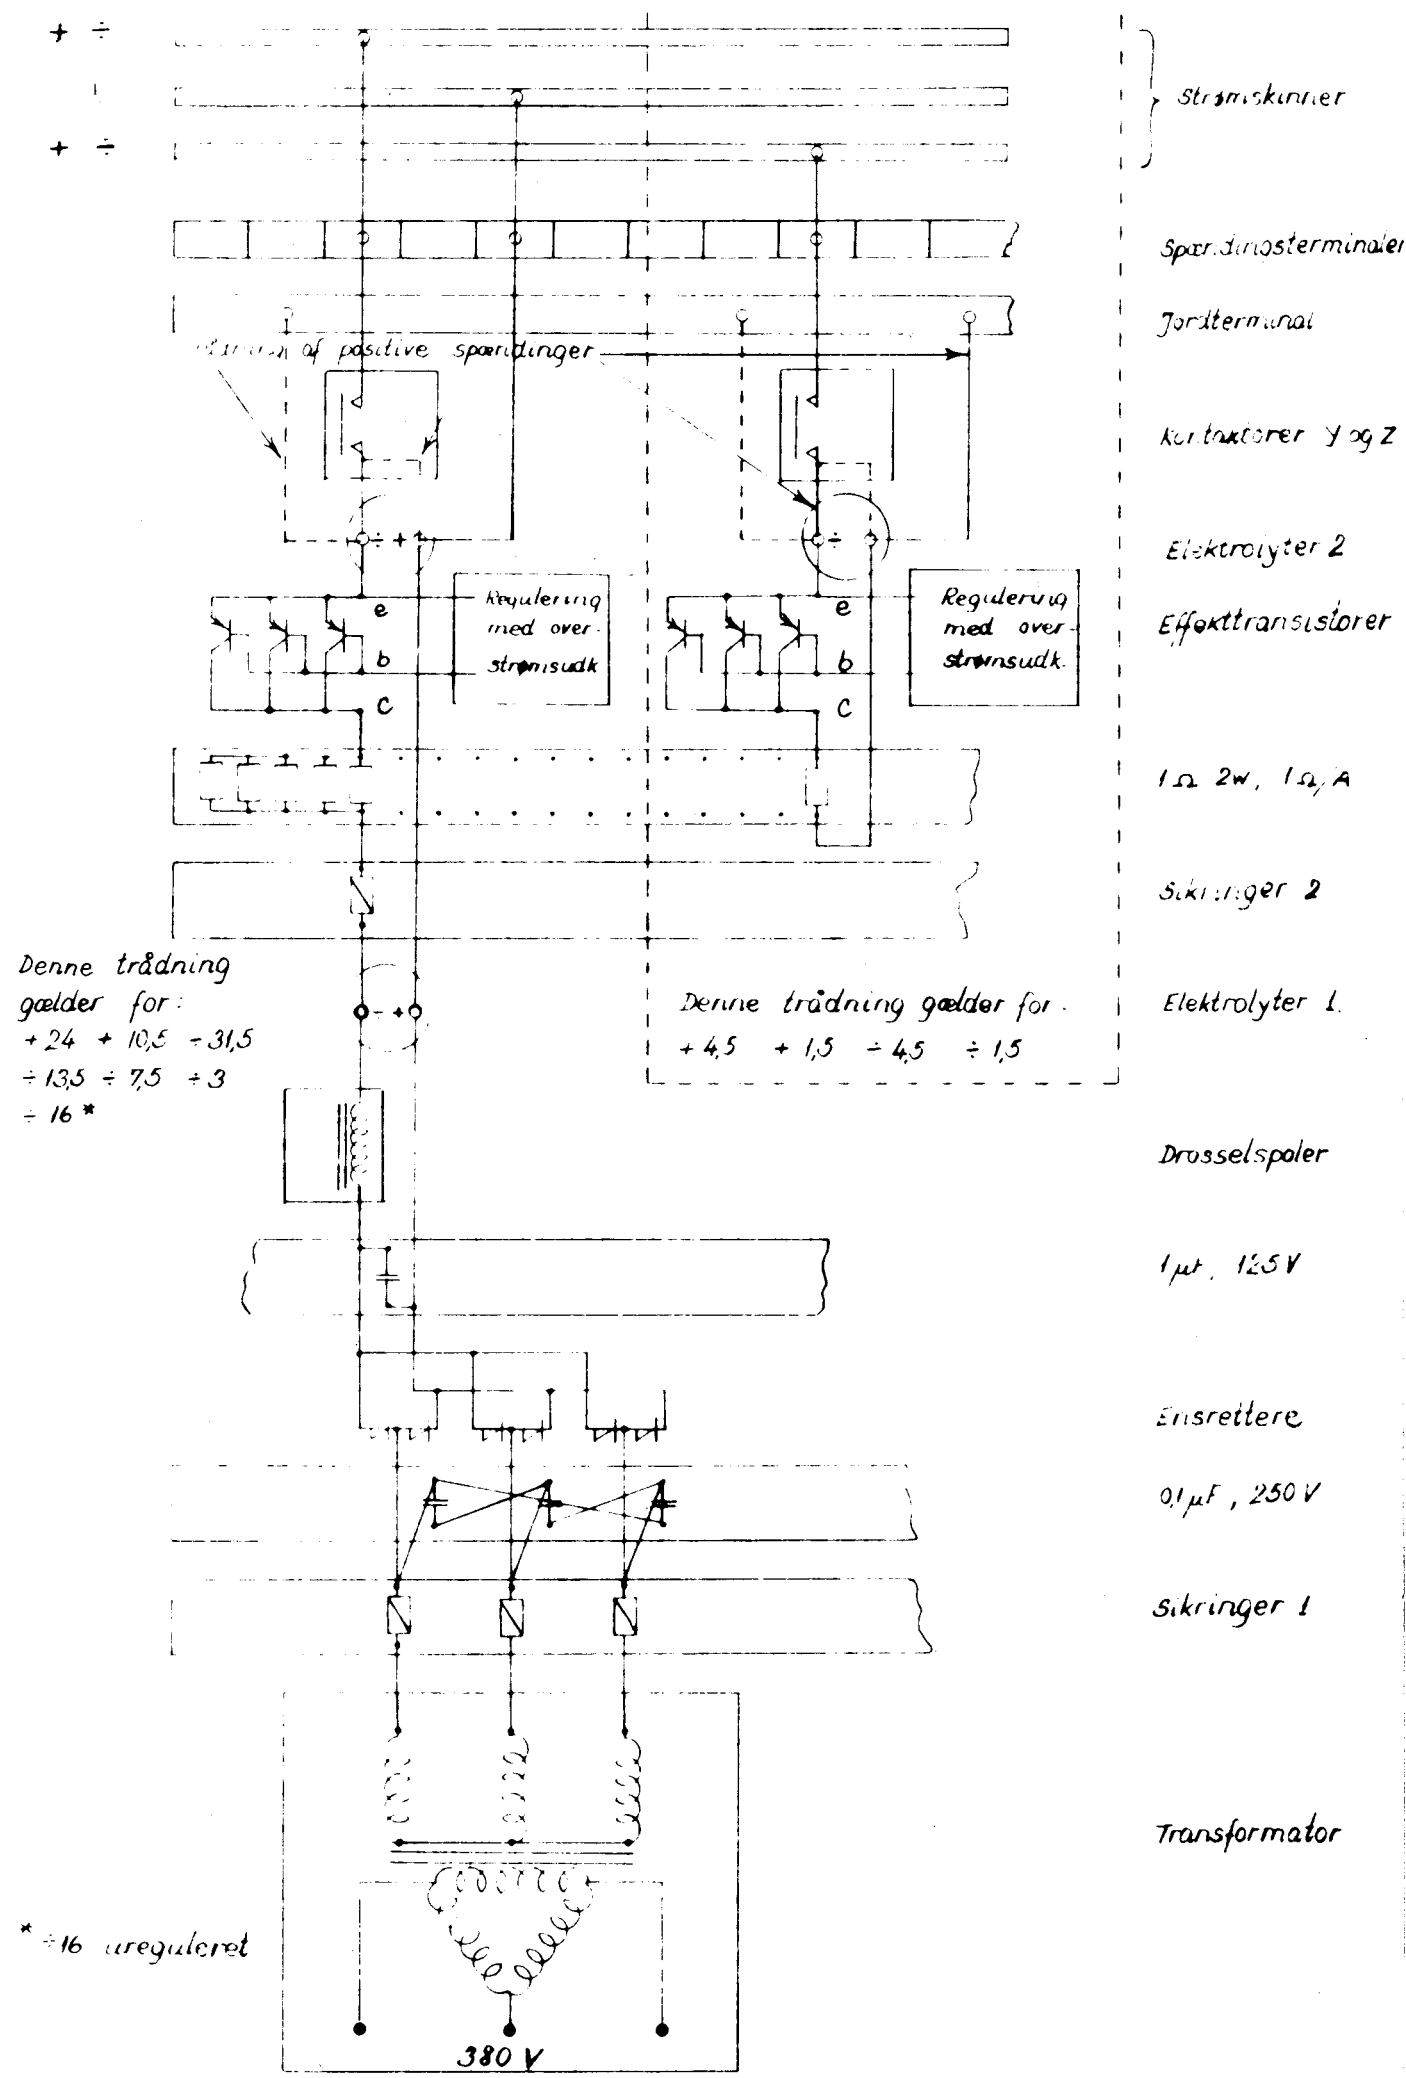 + ÷
Strømskinner
+ ÷
Spændingsterminaler
Jordterminal
af positive spændinger
Kontaktorer Y og Z
÷ +
÷
Elektrolyter 2
e
Regulering
med over-
strømsudk.
b
c
e
Regulering
med over-
strømsudk.
b
c
Effekttransistorer
1 Ω 2w, 1 Ω/A
Sikringer 2
Denne trådning
gælder for:
+24 + 10,5 ÷31,5
÷13,5 ÷ 7,5 ÷3
÷ 16 *
- +
Denne trådning gælder for.
+ 4,5 + 1,5 ÷ 4,5 ÷ 1,5
Elektrolyter 1.
Drosselspoler
1 µF, 125 V
Ensrettere
0,1 µF, 250 V
Sikringer 1
Transformator
* ÷16 ureguleret
380 V